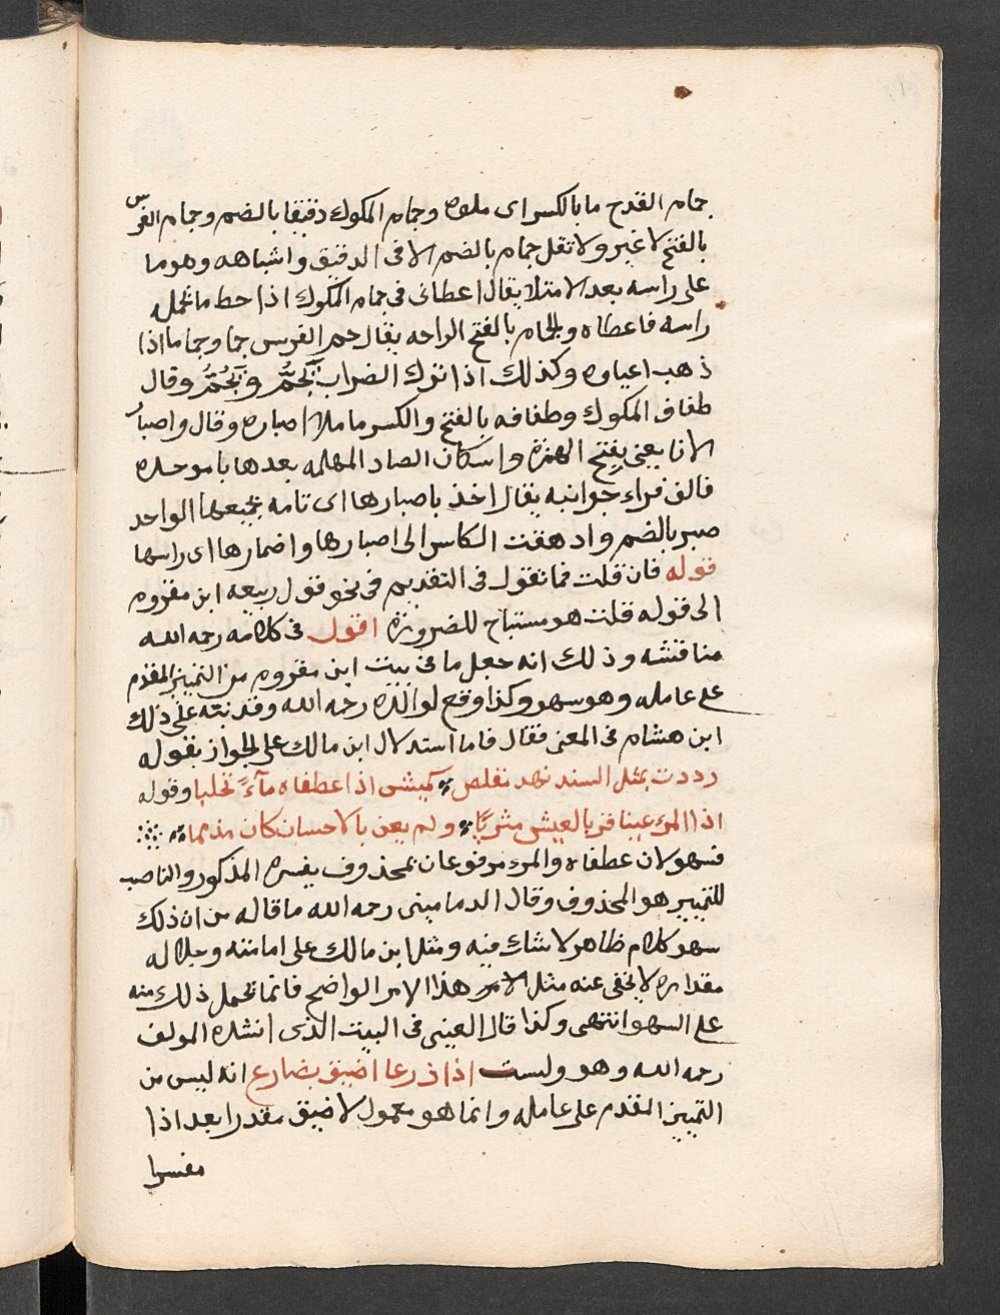 جمام القدح ما بالكسر اى ملوه وجمام المكوك دقيقا بالضم وجمام الفرس
بالفتح لا غير ولا تقل جمام بالضم الا فى الدقيق واشباهه وهو ما
على راسه بعد الامتلا يقال اعطانى جمام المكوك اذا حط ما تحمله
راسه فاعطاه والجمام بالفتح الراحه يقال جم الفرس جما وجماما اذا
ذهب اعياوه وكذلك اذا ترك الضراب يَجُمُّ و يَجِمُّ وقال
طفاف المكوك وطفافه بالفتح والكسر ما ملا اصباره وقال واصبار
الانا يعنى بفتح الهمزة واسكان الصاد المهمله بعدها با موحده
فالف فراء جوانبه يقال اخذ باصبارها اى تامه بجميعها الواحد
صبر بالضم وادهقت الكاس الى اصبارها واضمارها اى راسها
قوله فان قلت فما تقول فى التقديم فى نحو قول ربيعه ابن مقروم
الى قوله قلت هو مستباح للضرورة اقول فى كلامه رحمه الله
مناقشه وذلك انه جعل ما فى بيت ابن مقروم من التمييز المقدم
على عامله وهو سهو وكذا وقع لوالده رحمه الله وقد نبّه على ذلك
ابن هشام فى المغنى فقال فاما استدلال ابن مالك على الجواز بقوله
رددت بمثل السيد نهد مقلص كميش اذا عطفاه ماءً تحلبا وقوله
اذا المرء عينا قر بالعيش مثريًا ولم يعن بالاحسان كان مذمما
فسهو لان عطفاه والمرء مرفوعان بمحذوف يفسره المذكور والناصب
للتمييز هو المحذوف وقال الدمامينى رحمه الله ما قاله من ان ذلك
سهو كلام ظاهر لا شك فيه ومثل ابن مالك على امامته وجلاله
مقداره لا يخفى عنه مثل الامر هذا الامر الواضح فانما تحمل ذلك منه
على السهو انتهى وكذا قال العينى فى البيت الذى انشده المولف
رحمه الله وهو ولست اذا ذرعا اضيق بضارع انه ليس من
التمييز المقدم على عامله وانما هو معمول لاضيق مقدرا بعد اذا
مفسرا